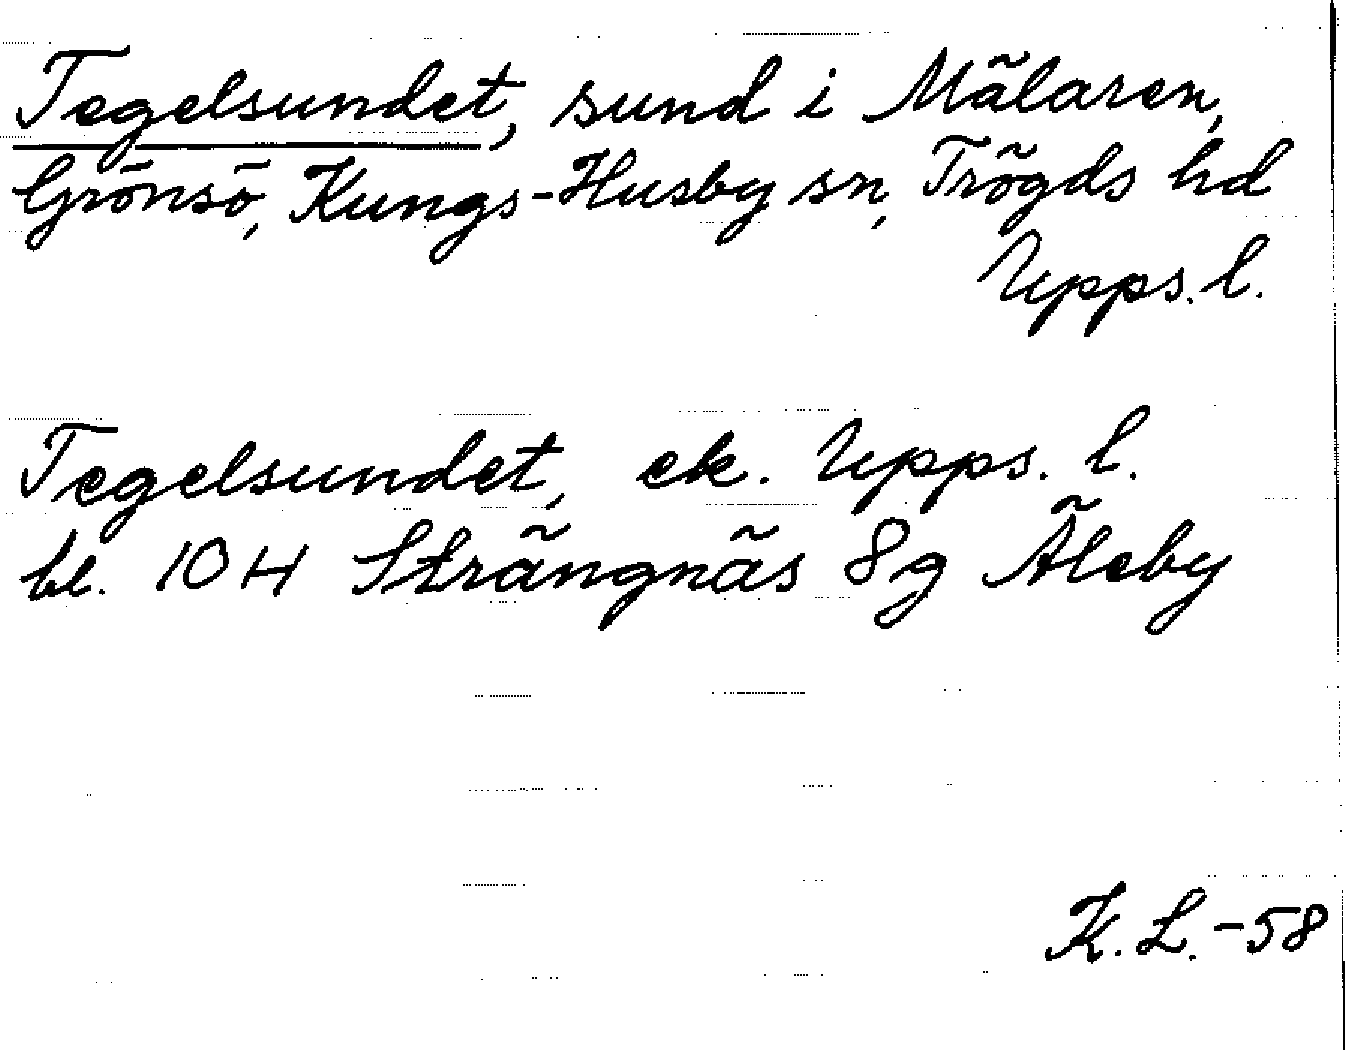 Tegelsundet, sund i Mälaren,
Grönsö, Kungs-Husby sn, Trögds hd
Upps. l.
Tegelsundet, ek. Upps. l.
bl. 10 H Strängnäs 8g Äleby
K. L. -58